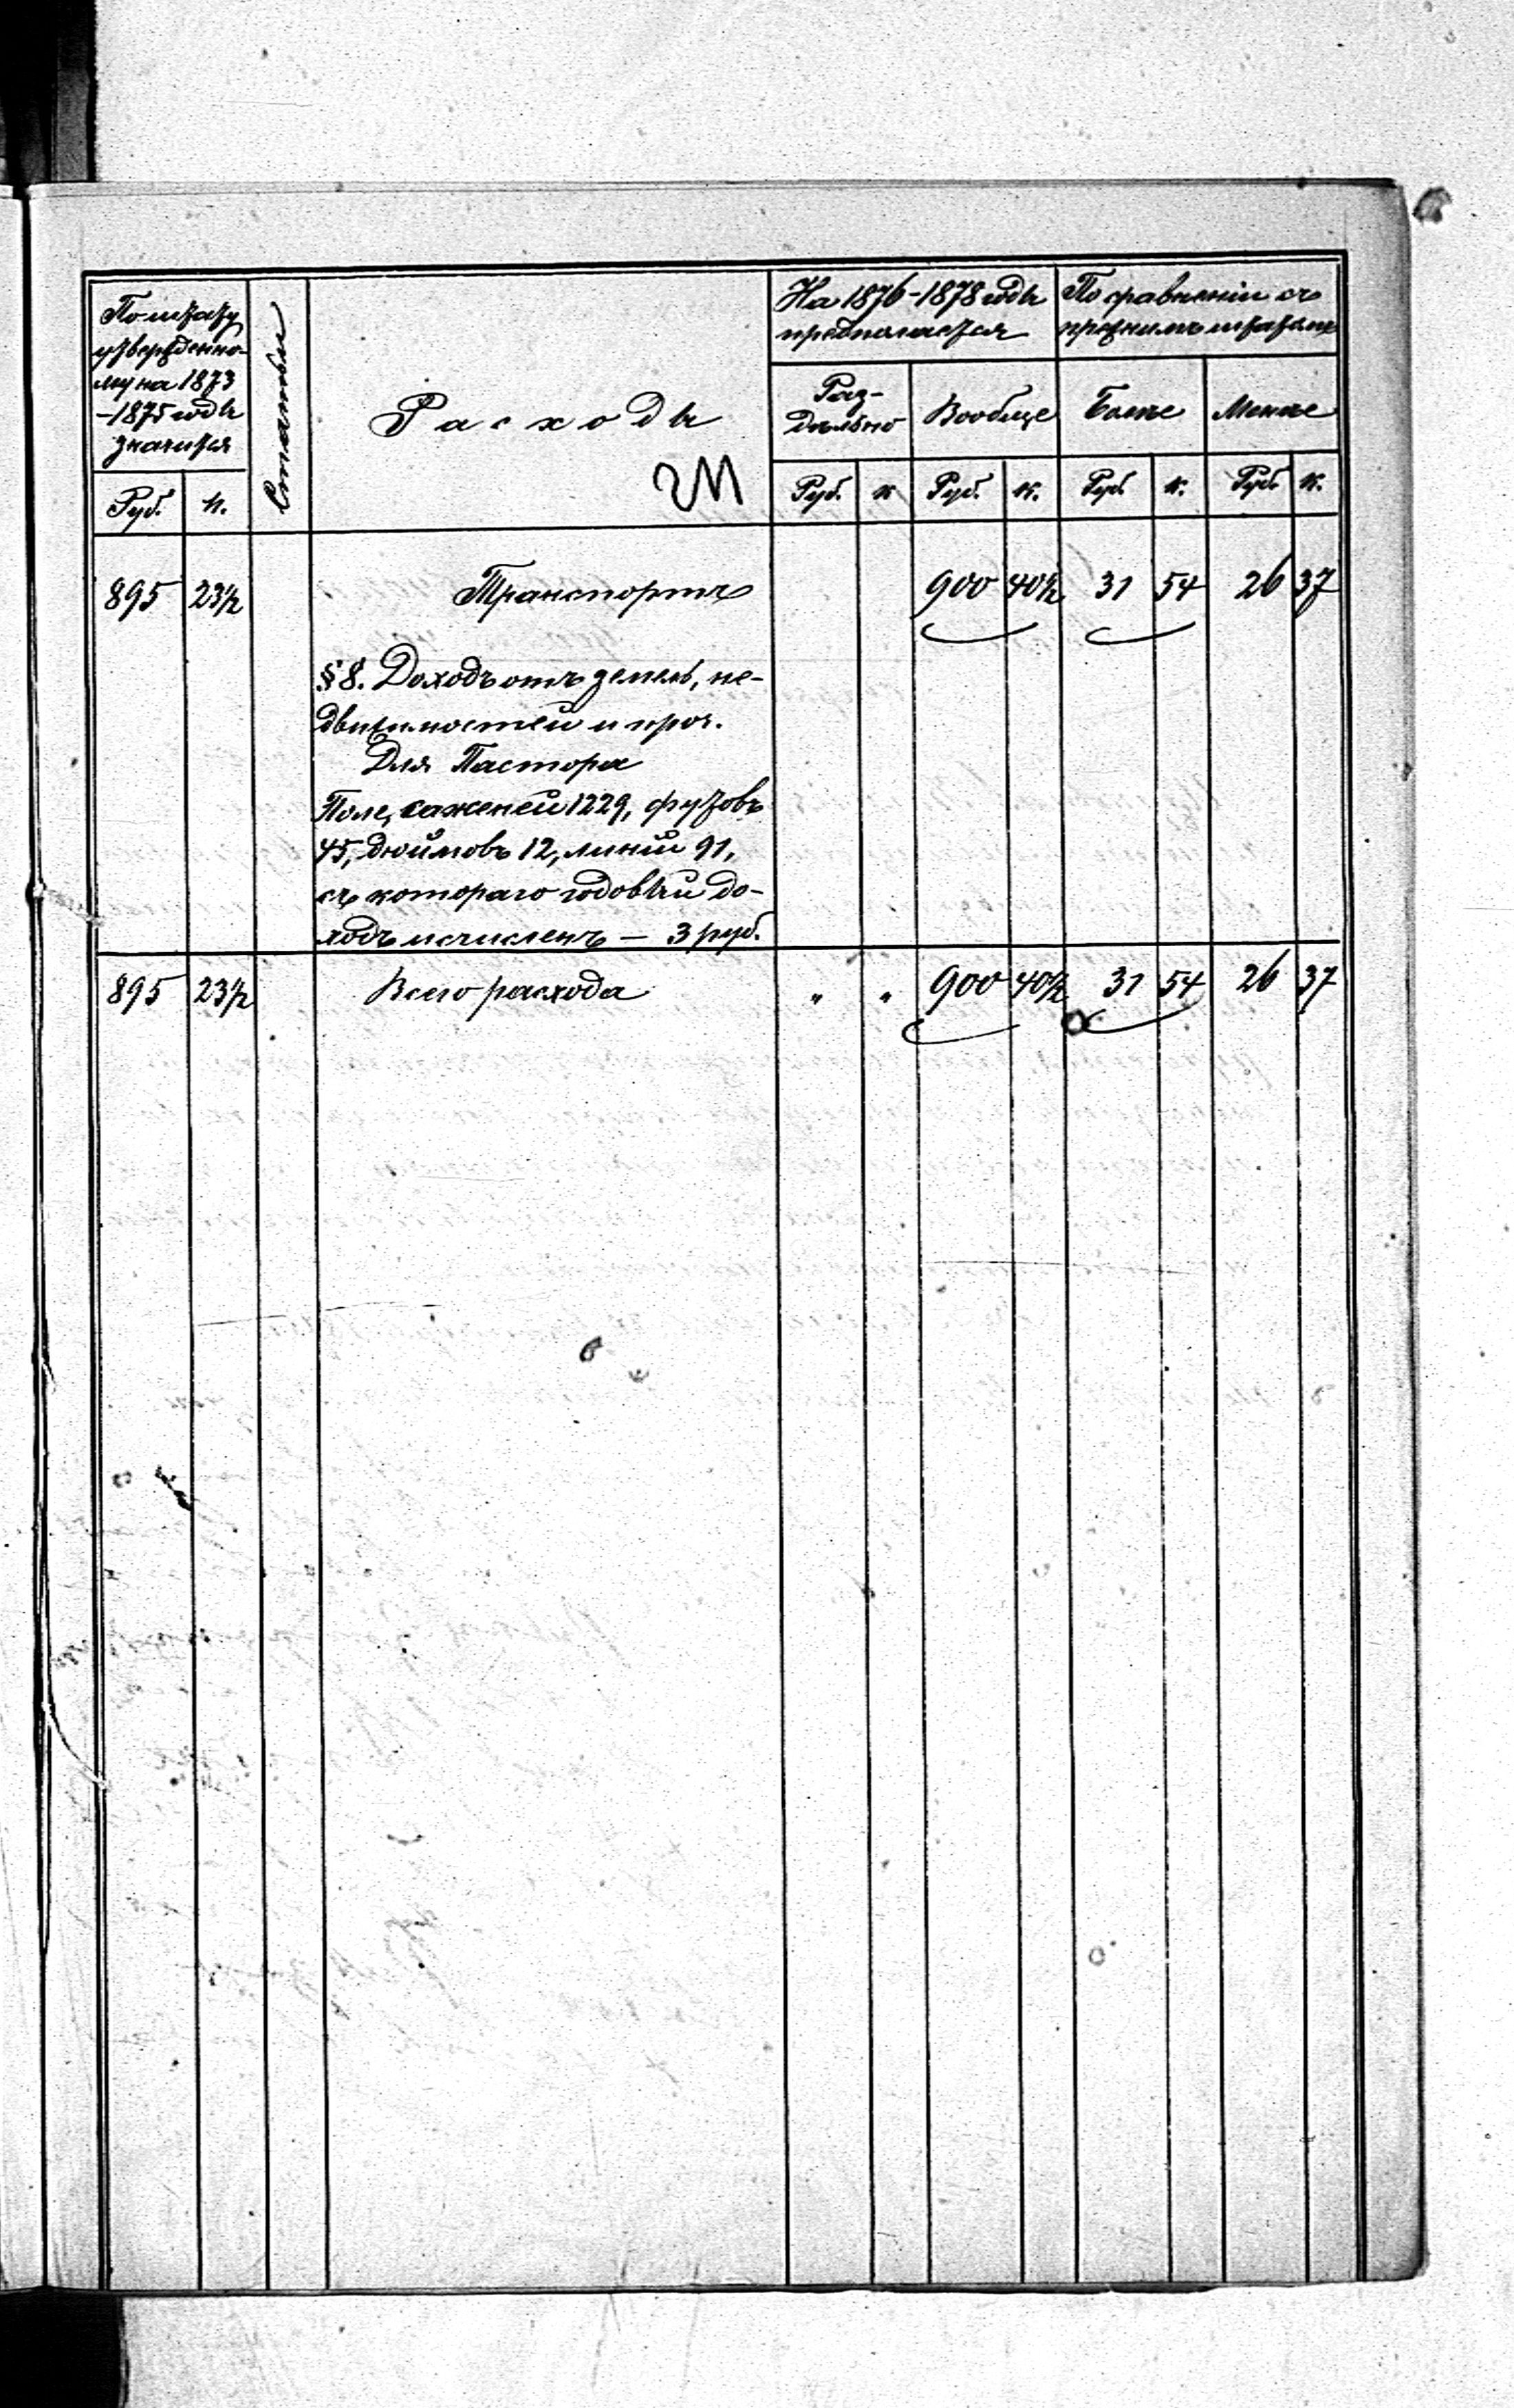 По штату
утвержденно-
му на 1873
-1875 годы
значится
Статьи
Расходы
На 1876-1878 годы
предполагается
По сравненiи съ
прежнимъ штатомъ
Раз-
дѣльно
Вообще
Болѣе
Менѣе
Руб. к. Руб. к Руб. к. Руб. к. Руб. к.
895 23½ Транспортъ 900 40½ 31 54 26 37
§ 8. Доходъ отъ земель, не-
движимостей и проч.
Для Пастора
Поле, саженей 1229, футовъ
45, дюймовъ 12, линiй 91,
съ котораго годовый до-
ходъ исчисленъ — 3 руб.
895 23½ Всего расхода " " 900 40½ 31 54 26 37